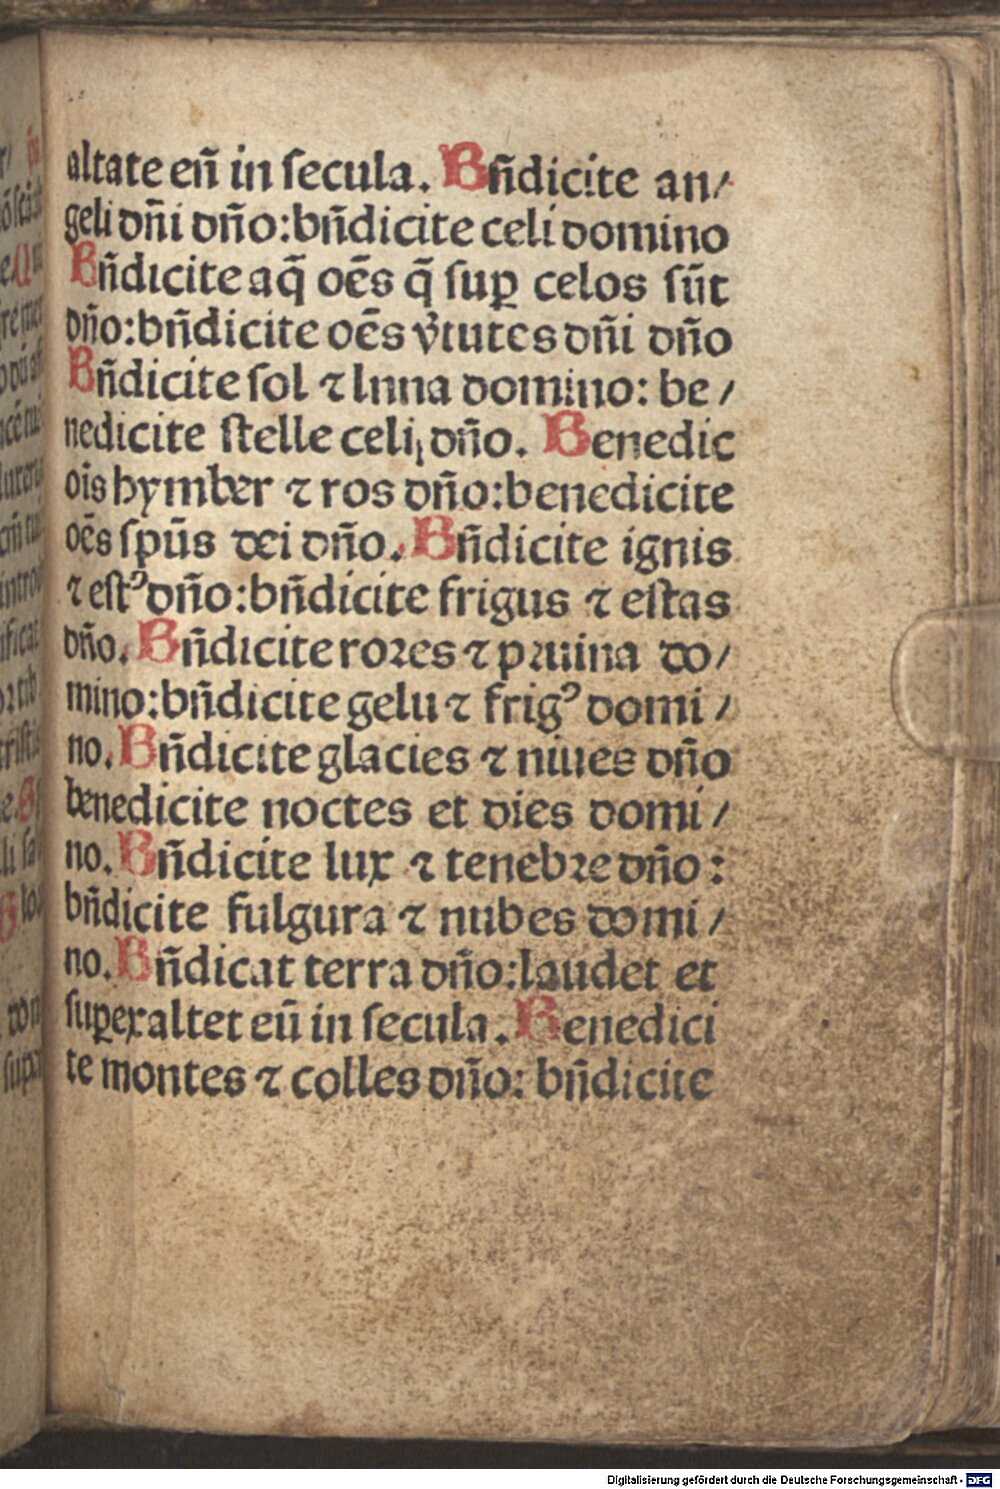 altate eū in secula. Bn̄dicite an/
geli dn̄i dn̄o: bn̄dicite celi domino
Bn̄dicite aq̄ oēs q̄ suꝑ celos sūt
dn̄o: bn̄dicite oēs v̄tutes dn̄i dn̄o
Bn̄dicite sol ⁊ lnna domino: be/
nedicite stelle celi, dn̄o. Benedic
oīs hymber ⁊ ros dn̄o: benedicite
oēs spūs dei dn̄o. Bn̄dicite ignis
⁊ estꝰ dn̄o: bn̄dicite frigus ⁊ estas
dn̄o. Bn̄dicite rores ⁊ pruina do/
mino: bn̄dicite gelu ⁊ frigꝰ domi/
no. Bn̄dicite glacies ⁊ niues dn̄o
benedicite noctes et dies domi/
no. Bn̄dicite lux ⁊ tenebre dn̄o:
bn̄dicite fulgura ⁊ nubes domi/
no. Bn̄dicat terra dn̄o: laudet et
suꝑexaltet eū in secula. Benedici
te montes ⁊ colles dn̄o: bn̄dicite
Digitalisierung gefördert durch die Deutsche Forschungsgemeinschaft - DFG